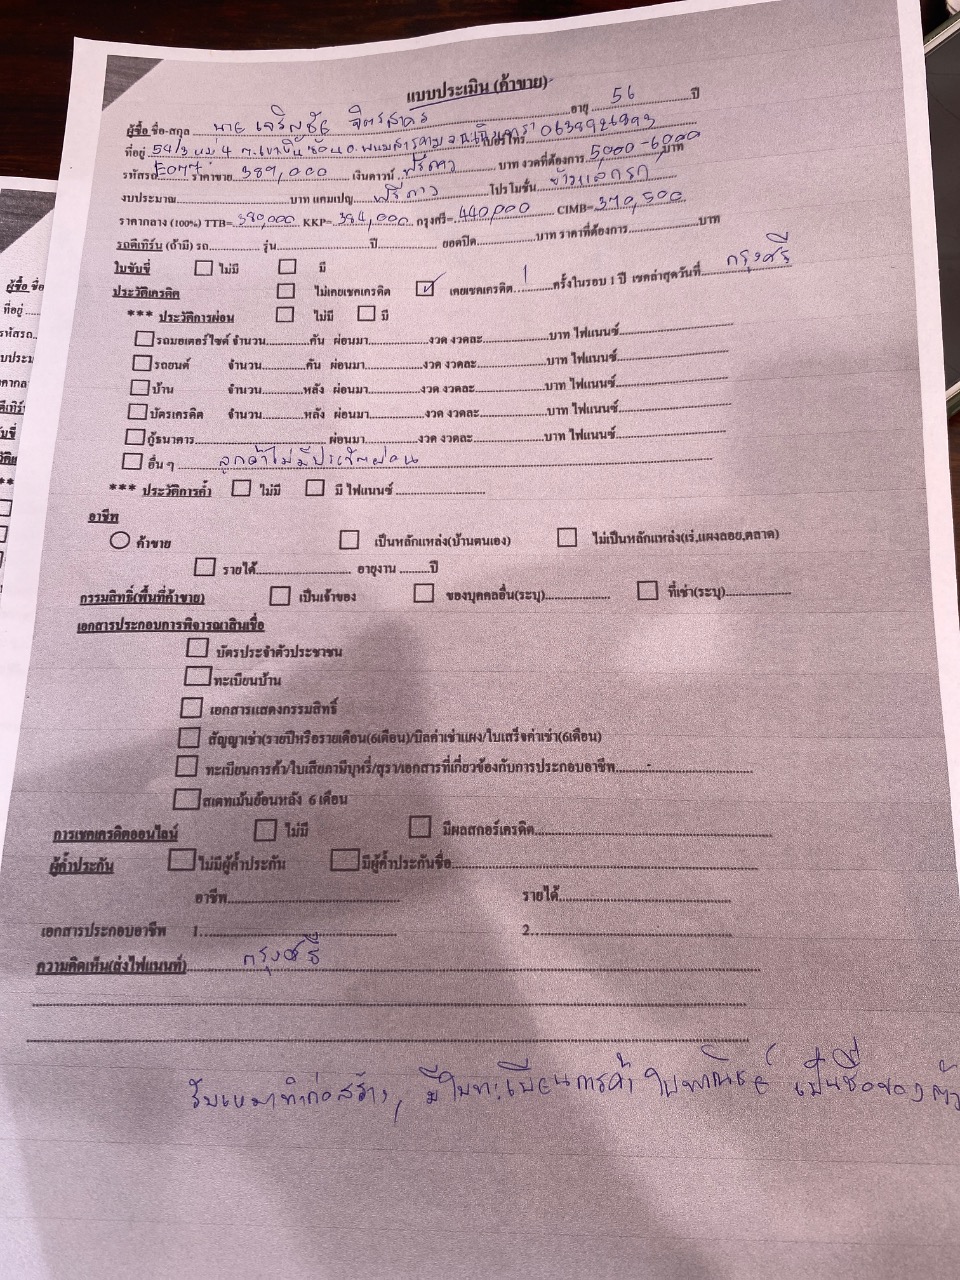 แบบประเมิน (ค้าขาย)
ผู้ซื้อ ชื่อ-สกุล นาย เจริญชัย จิตรสาคร อายุ 56 ปี
ที่อยู่ 54/3 หมู่ 4 ต.เขาหินซ้อน อ.พนมสารคาม จ.ฉะเชิงเทรา เบอร์โทร 0639926993
รหัสรถ E077 ราคาขาย 389,000 เงินดาวน์ ฟรีดาว บาท งวดที่ต้องการ 5,000-6,000 บาท
งบประมาณ บาท แคมเปญ ฟรีดาว โปรโมชั่น
ราคากลาง (100%) TTB= 380,000 KKP= 384,000 กรุงศรี= 440,000 CIMB= 370,500
รถตีเทิร์น (ถ้ามี) รถ รุ่น ปี ยอดปิด บาท ราคาที่ต้องการ บาท
ใบขับขี่ ไม่มี มี
ประวัติเครดิต ไม่เคยเชคเครดิต ✓ เคยเชคเครดิต 1 ครั้งในรอบ 1 ปี เชคล่าสุดวันที่ กรุงศรี
*** ประวัติการผ่อน ไม่มี มี
รถมอเตอร์ไซต์ จำนวน คัน ผ่อนมา งวด งวดละ บาท ไฟแนนซ์
รถยนต์ จำนวน คัน ผ่อนมา งวด งวดละ บาท ไฟแนนซ์
บ้าน จำนวน หลัง ผ่อนมา งวด งวดละ บาท ไฟแนนซ์
บัตรเครดิต จำนวน หลัง ผ่อนมา งวด งวดละ บาท ไฟแนนซ์
กู้ธนาคาร ผ่อนมา งวด งวดละ บาท ไฟแนนซ์
อื่น ๆ ลูกค้าไม่มีประวัติผ่อน
*** ประวัติการค้ำ ไม่มี มี ไฟแนนซ์
อาชีพ
ค้าขาย เป็นหลักแหล่ง(บ้านตนเอง) ไม่เป็นหลักแหล่ง(เร่,แผงลอย,ตลาด)
รายได้ อายุงาน ปี
กรรมสิทธิ์(พื้นที่ค้าขาย) เป็นเจ้าของ ของบุคคลอื่น(ระบุ) ที่เช่า(ระบุ)
เอกสารประกอบการพิจารณาสินเชื่อ
บัตรประจำตัวประชาชน
ทะเบียนบ้าน
เอกสารแสดงกรรมสิทธิ์
สัญญาเช่า(รายปีหรือรายเดือน(6เดือน)/บิลค่าเช่าแผง/ใบเสร็จค่าเช่า(6เดือน)
ทะเบียนการค้า/ใบเสียภาษีบุหรี่/สุรา/เอกสารที่เกี่ยวข้องกับการประกอบอาชีพ
สเตทเม้นย้อนหลัง 6 เดือน
การเชคเครดิตออนไลน์ ไม่มี มีผลสกอร์เครดิต
ผู้ค้ำประกัน ไม่มีผู้ค้ำประกัน มีผู้ค้ำประกันชื่อ
อาชีพ รายได้
เอกสารประกอบอาชีพ 1. 2.
ความคิดเห็น(ส่งไฟแนนท์) กรุงศรี
รับเหมาทำก่อสร้าง, มีใบทะเบียนการค้า ใบพาณิชย์ เป็นชื่อของตัว